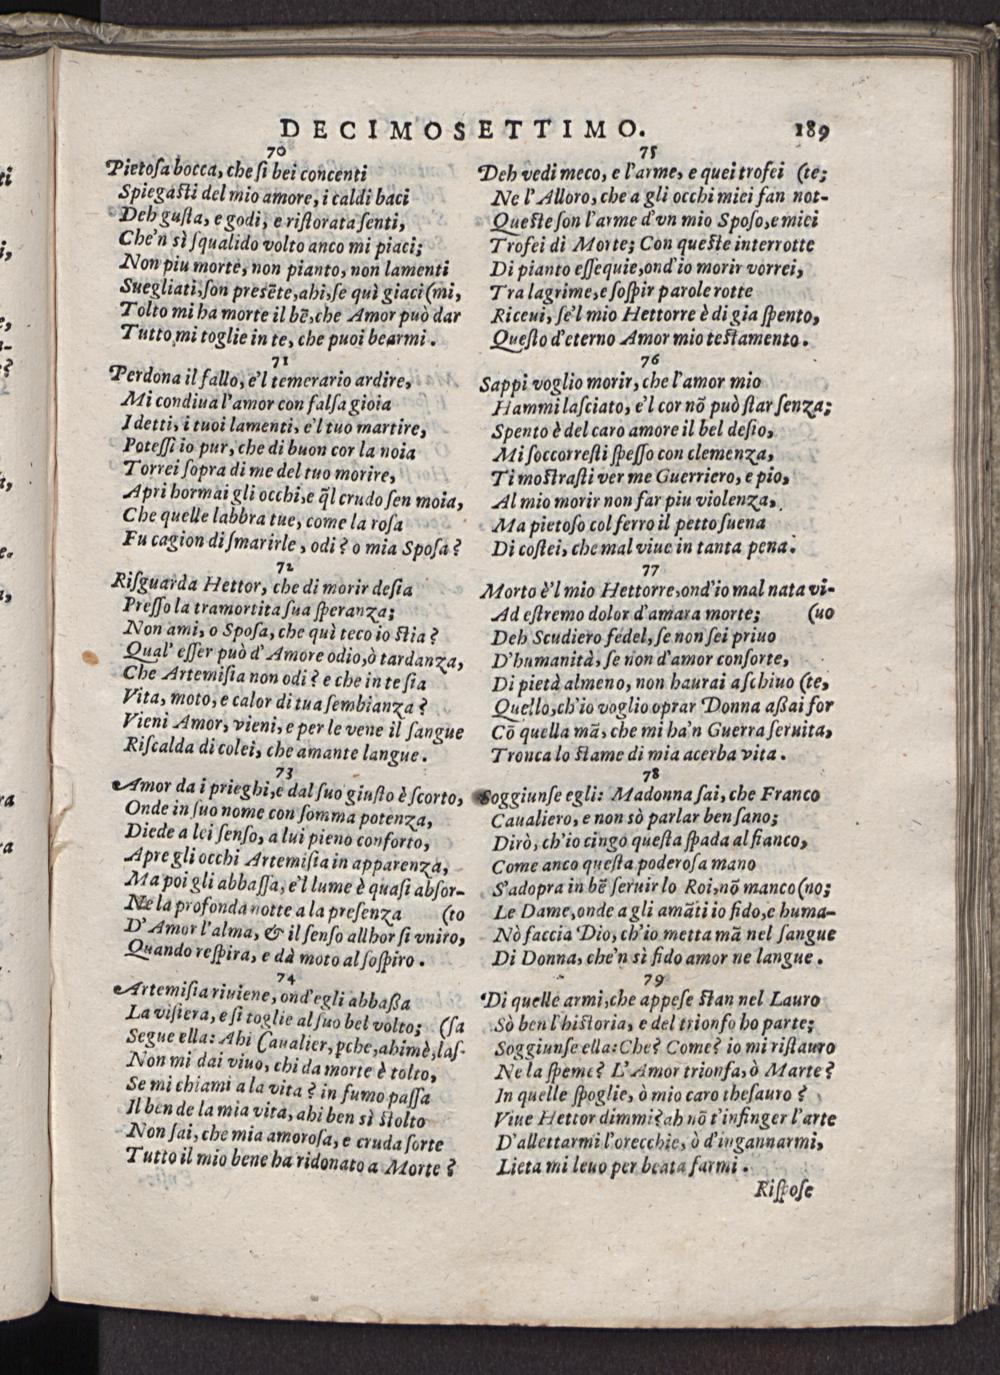 DECIMOSETTIMO. 189
70
Pietoſa bocca, che ſi bei concenti
Spiegaſti del mio amore, i caldi baci
Deh guſta, e godi, e riſtorata ſenti,
Che'n sì ſqualido volto anco mi piaci;
Non piu morte, non pianto, non lamenti
Suegliati, ſon presẽte, ahi, ſe quì giaci (mi,
Tolto mi ha morte il bẽ, che Amor può dar
Tutto mi toglie in te, che puoi bearmi.
71
Perdona il fallo, e'l temerario ardire,
Mi condiua l'amor con falſa gioia
I detti, i tuoi lamenti, e'l tuo martire,
Poteſſi io pur, che di buon cor la noia
Torrei ſopra di me del tuo morire,
Apri hormai gli occhi, e q̃l crudo ſen moia,
Che quelle labbra tue, come la roſa
Fu cagion di ſmarirle, odi? o mia Spoſa?
72
Riſguarda Hettor, che di morir deſia
Preſſo la tramortita ſua ſperanza;
Non ami, o Spoſa, che quì teco io ſtia?
Qual' eſſer può d' Amore odio, ò tardanza,
Che Artemiſia non odi? e che in te ſia
Vita, moto, e calor di tua ſembianza?
Vieni Amor, vieni, e per le vene il ſangue
Riſcalda di colei, che amante langue.
73
Amor da i prieghi, e dal ſuo giuſto è ſcorto,
Onde in ſuo nome con ſomma potenza,
Diede a lei ſenſo, a lui pieno conforto,
Apre gli occhi Artemiſia in apparenza,
Ma poi gli abbaſſa, e'l lume è quaſi abſor-
Ne la profonda notte a la preſenza (to
D' Amor l'alma, & il ſenſo allhor ſi vniro,
Quando reſpira, e dà moto al ſoſpiro.
74
Artemiſia riuiene, ond'egli abbaßa
La viſiera, e ſi toglie al ſuo bel volto; (ſa
Segue ella: Ahi Caualier, pche, ahimè, laſ-
Non mi dai viuo, chi da morte è tolto,
Se mi chiami a la vita? in fumo paſſa
Il ben de la mia vita, ahi ben sì ſtolto
Non ſai, che mia amoroſa, e cruda ſorte
Tutto il mio bene ha ridonato a Morte?
75
Deh vedi meco, e l'arme, e quei trofei (te;
Ne l'Alloro, che a gli occhi miei fan not-
Queſte ſon l'arme d'vn mio Spoſo, e miei
Trofei di Morte; Con queſte interrotte
Di pianto eſſequie, ond'io morir vorrei,
Tra lagrime, e ſoſpir parole rotte
Riceui, ſe'l mio Hettorre è di gia ſpento,
Queſto d'eterno Amor mio teſtamento.
76
Sappi voglio morir, che l'amor mio
Hammi laſciato, e'l cor nõ può ſtar ſenza;
Spento è del caro amore il bel deſio,
Mi ſoccorreſti ſpeſſo con clemenza,
Ti moſtraſti ver me Guerriero, e pio,
Al mio morir non far piu violenza,
Ma pietoſo col ferro il petto ſuena
Di coſtei, che mal viue in tanta pena.
77
Morto è'l mio Hettorre, ond'io mal nata vi-
Ad eſtremo dolor d'amara morte; (uo
Deh Scudiero fedel, ſe non ſei priuo
D'humanità, ſe non d'amor conſorte,
Di pietà almeno, non haurai aſchiuo (te,
Quello, ch'io voglio oprar Donna aßai for
Cõ quella mã, che mi ha'n Guerra ſeruita,
Tronca lo ſtame di mia acerba vita.
78
Soggiunſe egli: Madonna ſai, che Franco
Caualiero, e non sò parlar ben ſano;
Dirò, ch'io cingo queſta ſpada al fianco,
Come anco queſta poderoſa mano
S'adopra in bẽ ſeruir lo Roi, nõ manco (no;
Le Dame, onde a gli amãti io fido, e huma-
Nò faccia Dio, ch'io metta mã nel ſangue
Di Donna, che'n si fido amor ne langue.
79
Di quelle armi, che appeſe ſtan nel Lauro
Sò ben l'hiſtoria, e del trionfo ho parte;
Soggiunſe ella: Che? Come? io mi riſtauro
Ne la ſpeme? L'Amor trionfa, ò Marte?
In quelle ſpoglie, ò mio caro theſauro?
Viue Hettor dimmi? ah nõ t'infinger l'arte
D'allettarmi l'orecchie, ò d'ingannarmi,
Lieta mi leuo per beata farmi.
Riſpoſe